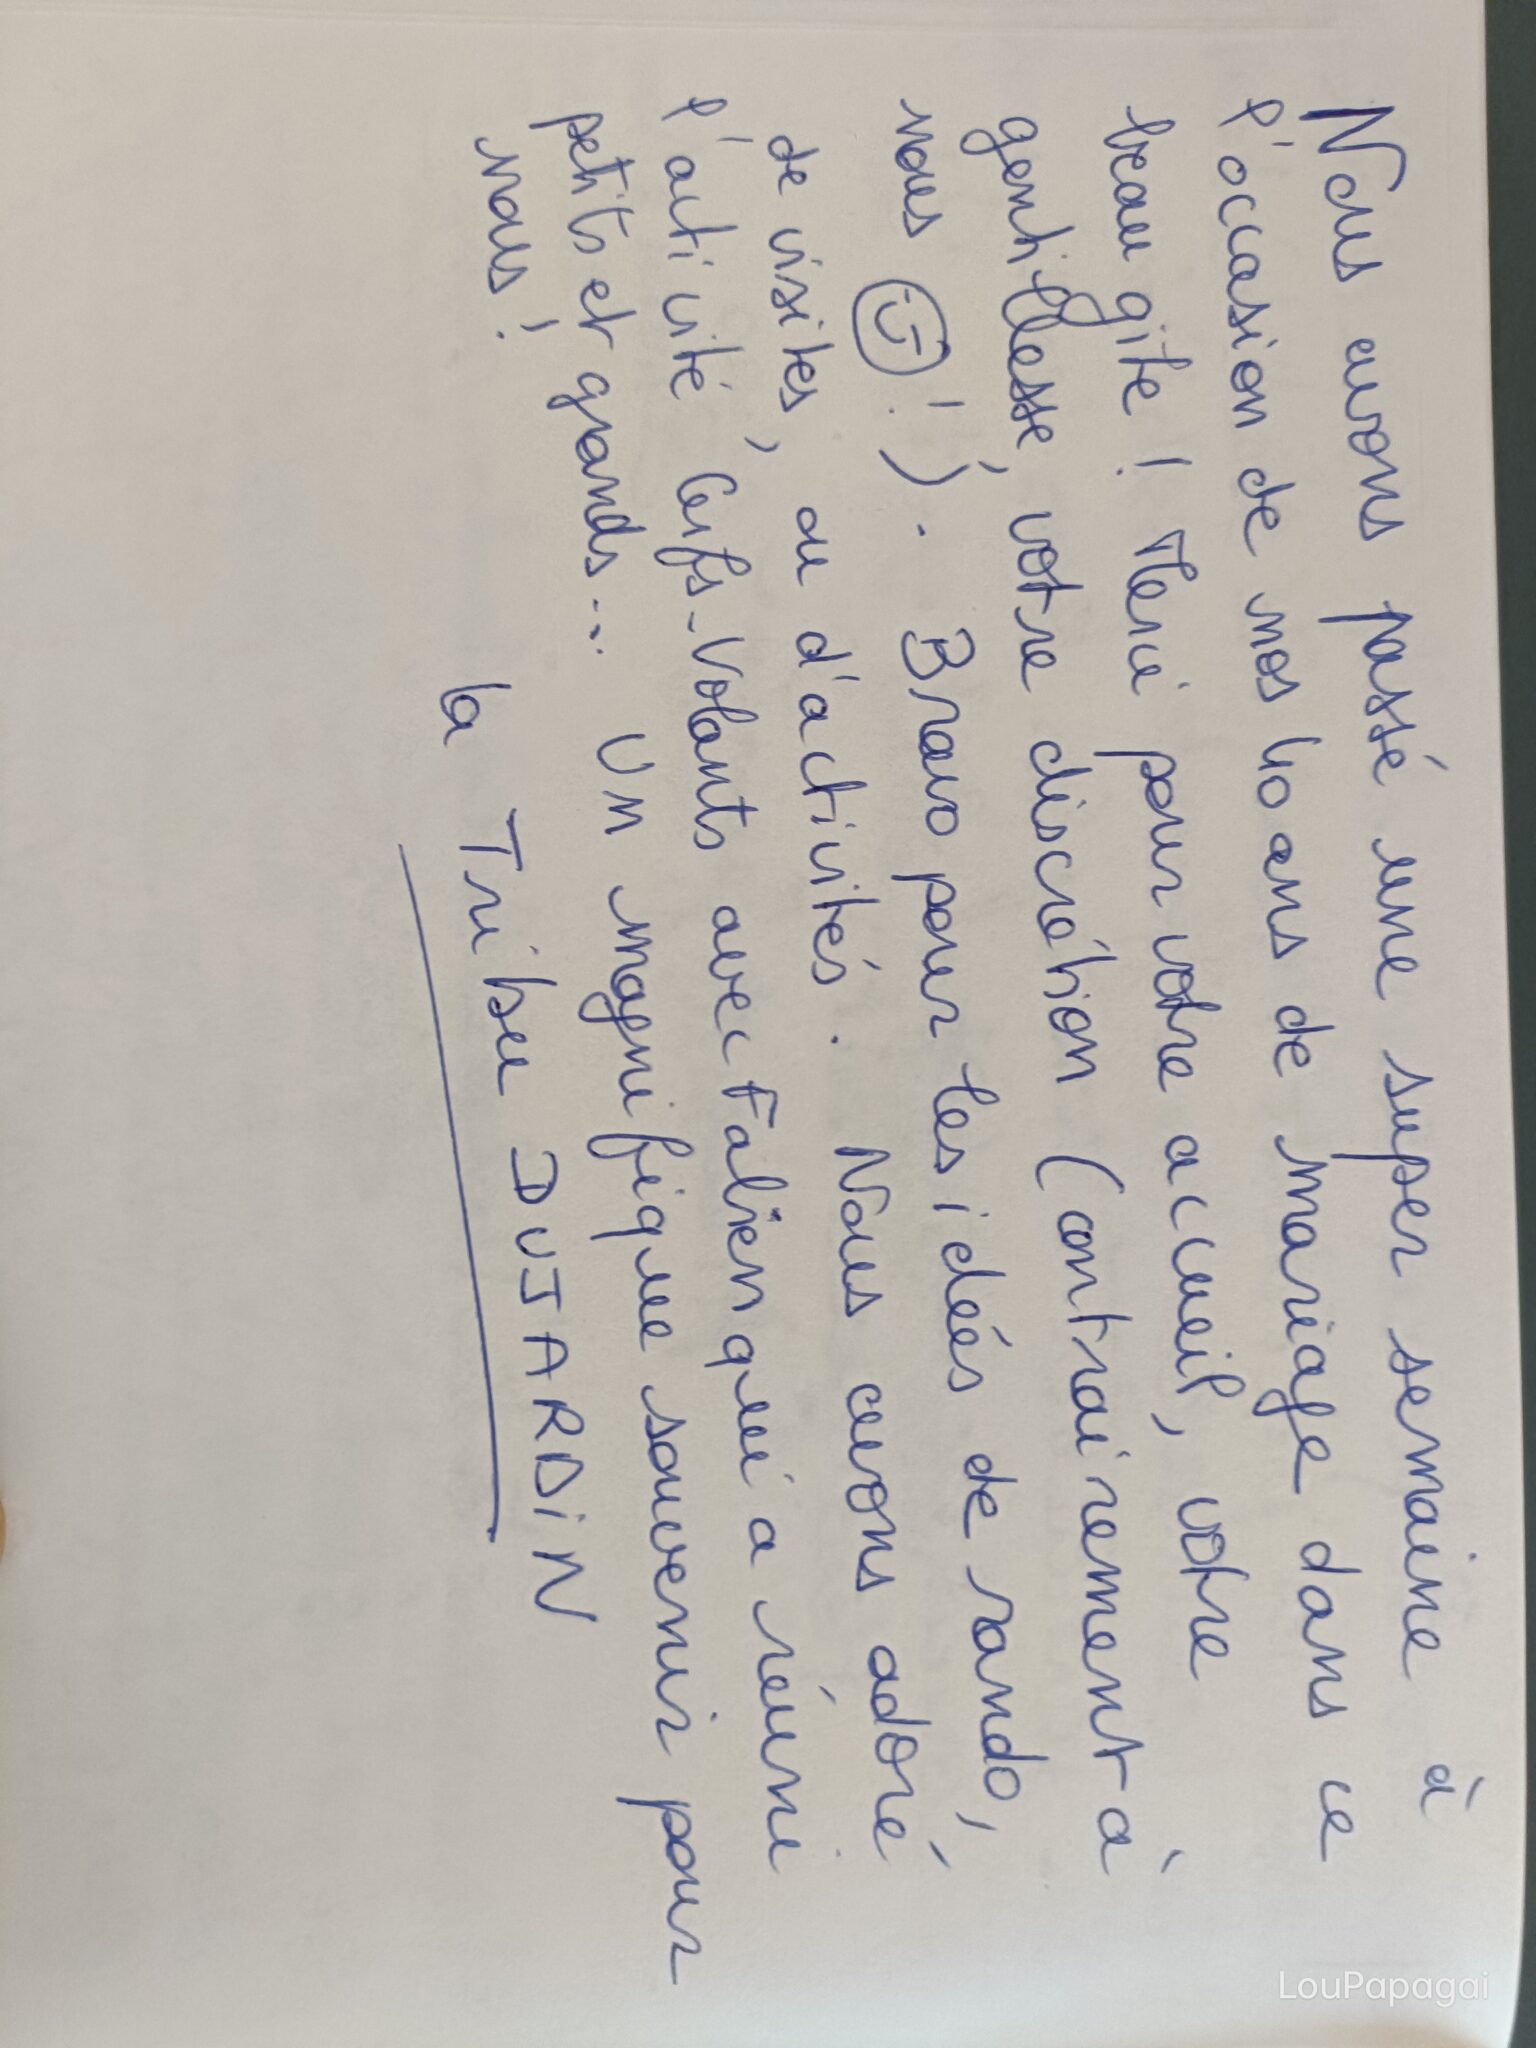 Nous avons passé une super semaine à
l'occasion de nos 40 ans de mariage dans ce
beau gite ! Merci pour votre accueil, votre
gentillesse, votre discrétion (contrairement à
nous !). Bravo pour les idées de rando,
de visites, ou d'activités. Nous avons adoré
l'activité Cerfs-Volants avec Fabien qui a réuni
petits et grands... Un magnifique souvenir pour
nous !
La Tribu DUJARDiN
LouPapagai